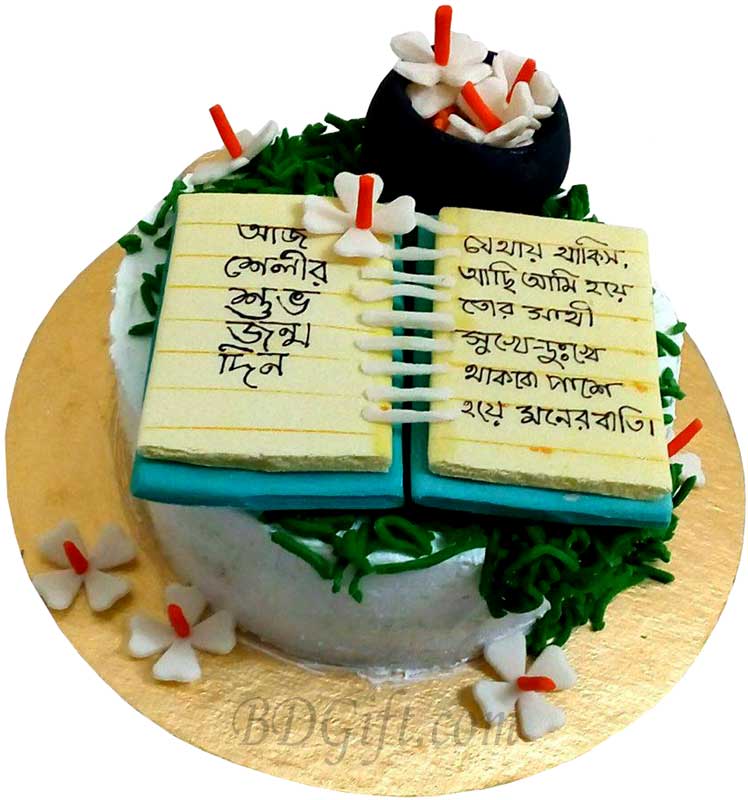 আজ
শেলীর
শুভ
জন্ম
দিন
যেথায় থাকিস,
আছি আমি হয়ে
তোর সাথী
সুখে-দুঃখে
থাকবো পাশে
হয়ে মনের বাতি।
BDGift.com